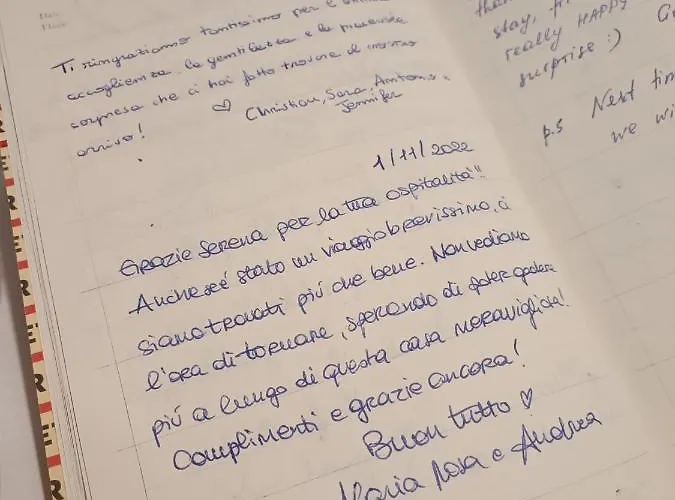 Ti ringraziamo tantissimo per l'
accoglienza, la gentilezza e la piacevole
sorpresa che ci hai fatto trovare al nostro
arrivo!
♡ Christian, Sara, Antonio e
Jennifer
1/11/2022
Grazie Serena per la tua ospitalità!!
Anche se è stato un viaggio brevissimo, ci
siamo trovati più che bene. Non vediamo
l'ora di tornare, sperando di poter godere
più a lungo di questa casa meravigliosa!
Complimenti e grazie ancora!
Buon tutto ♡
Maria Rosa e Andrea
stay,
really HAPPY
surprise :)
p.s Next tim
we wi